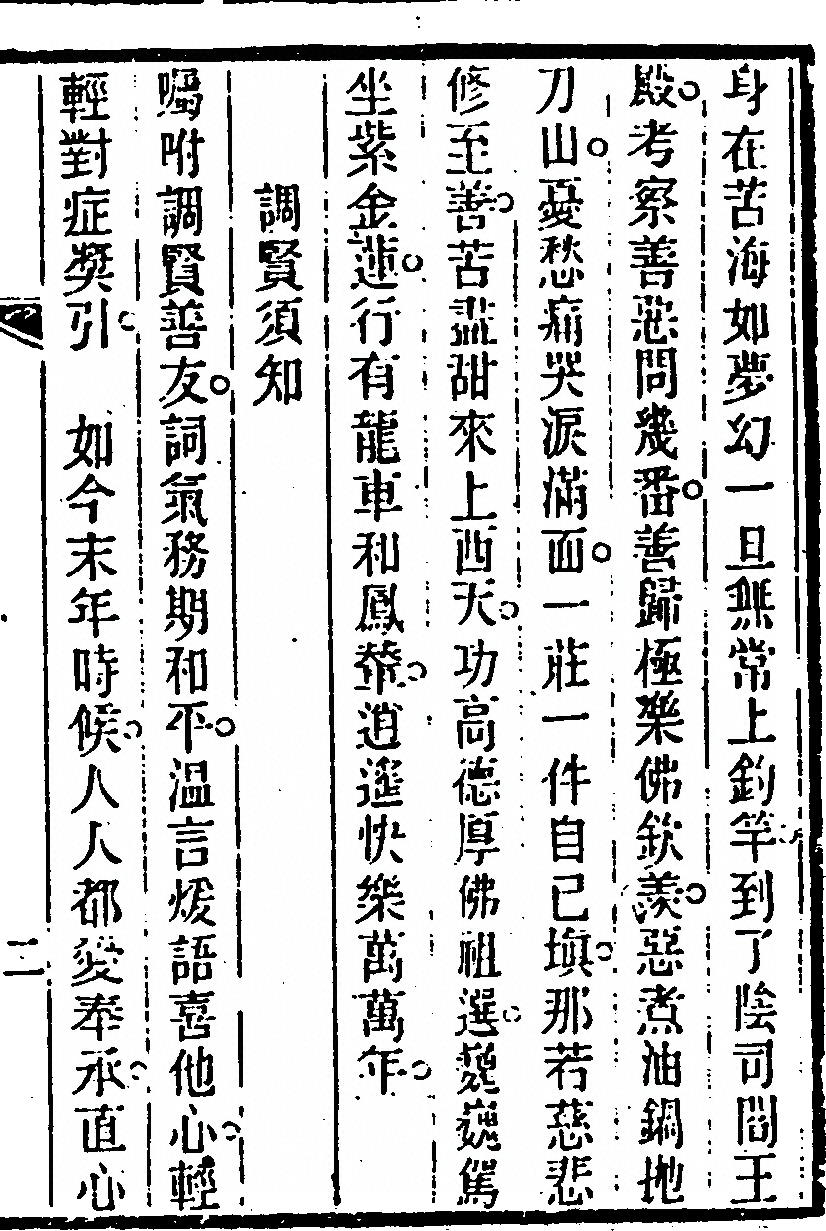 身在苦海如夢幻一旦無常上釣竿到了陰司閻王
殿考察善惡問幾番善歸極樂佛欽羨惡煮油鍋抛
刀山憂愁痛哭淚滿面一莊一件自己填那若慈悲
修至善苦盡甜來上西天功高德厚佛祖選巍巍駕
坐紫金蓮行有龍車和鳳輦逍遙快樂萬萬年
調賢須知
囑咐調賢善友詞氣務期和平溫言煖語喜他心輕
輕對症奬引 如今末年時候人人都愛奉承直心
二